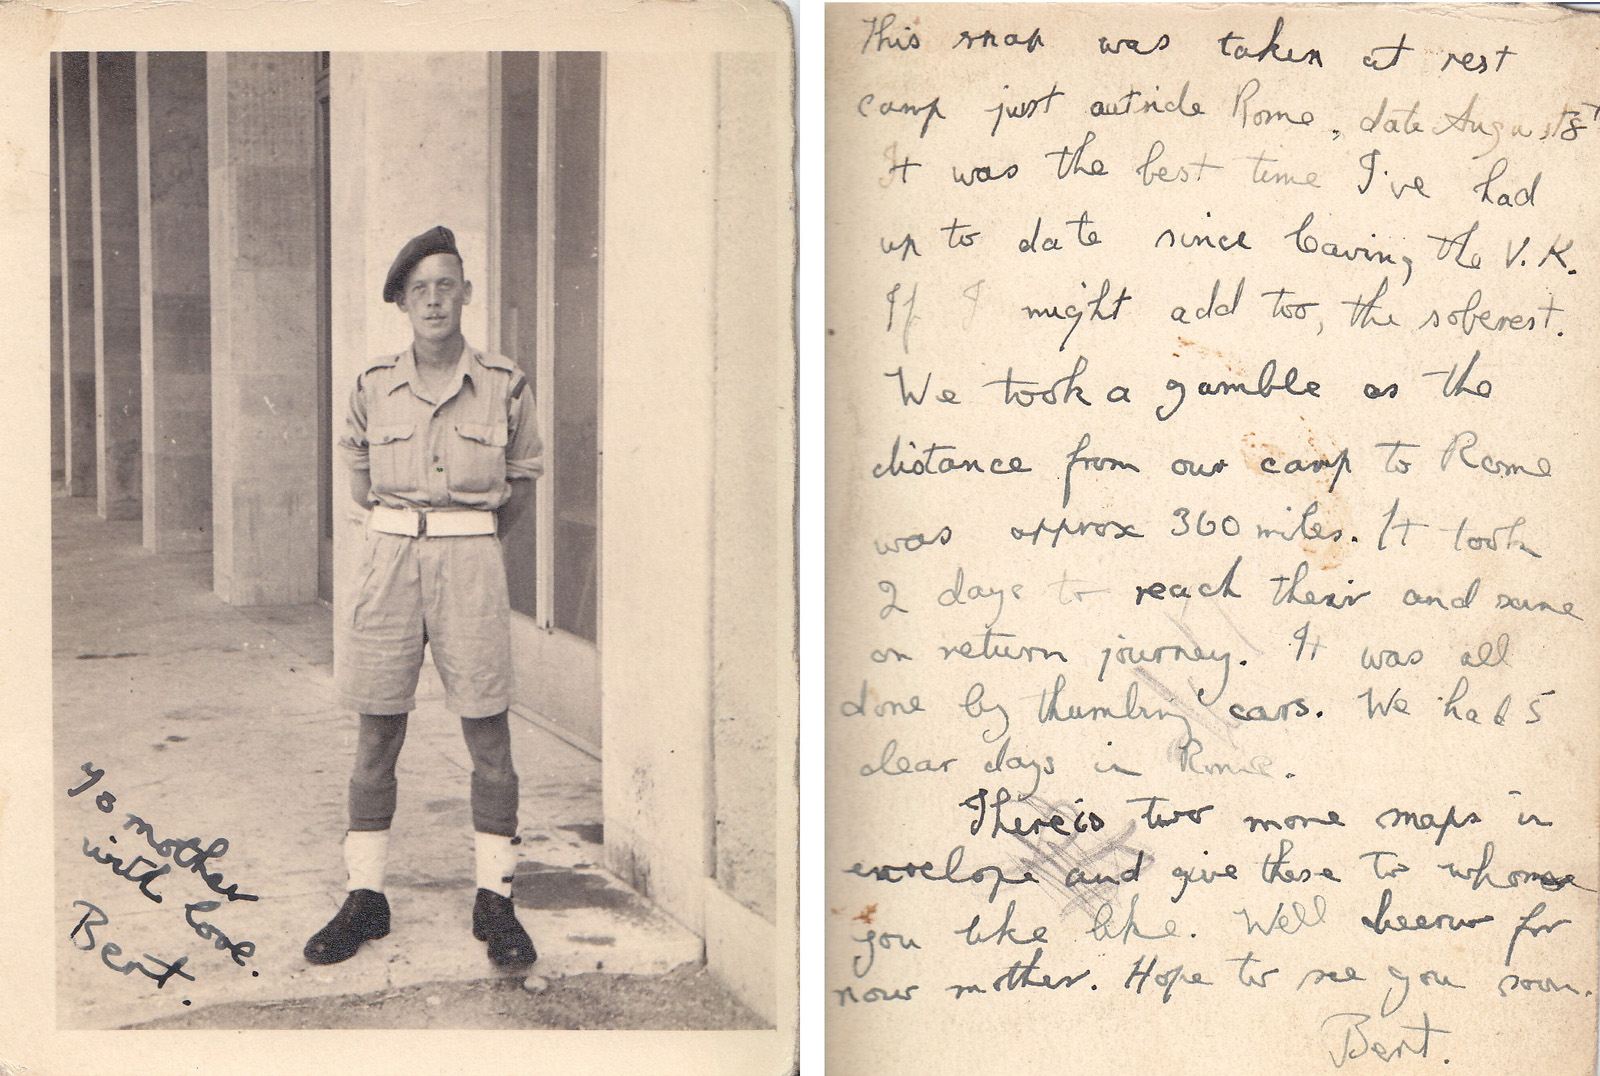 To mother
with love.
Bert.
This snap was taken at rest
camp just outside Rome, date August 8th
It was the best time I've had
up to date since leaving the V.K.
If I might add too, the soberest.
We took a gamble as the
distance from our camp to Rome
was approx 360 miles. It took
2 days to reach their and same
on return journey. It was all
done by thumbing cars. We had 5
clear days in Rome.
There is two more snaps in
envelope and give these to whome
you like like. Well cheerio for
now mother. Hope to see you soon.
Bert.